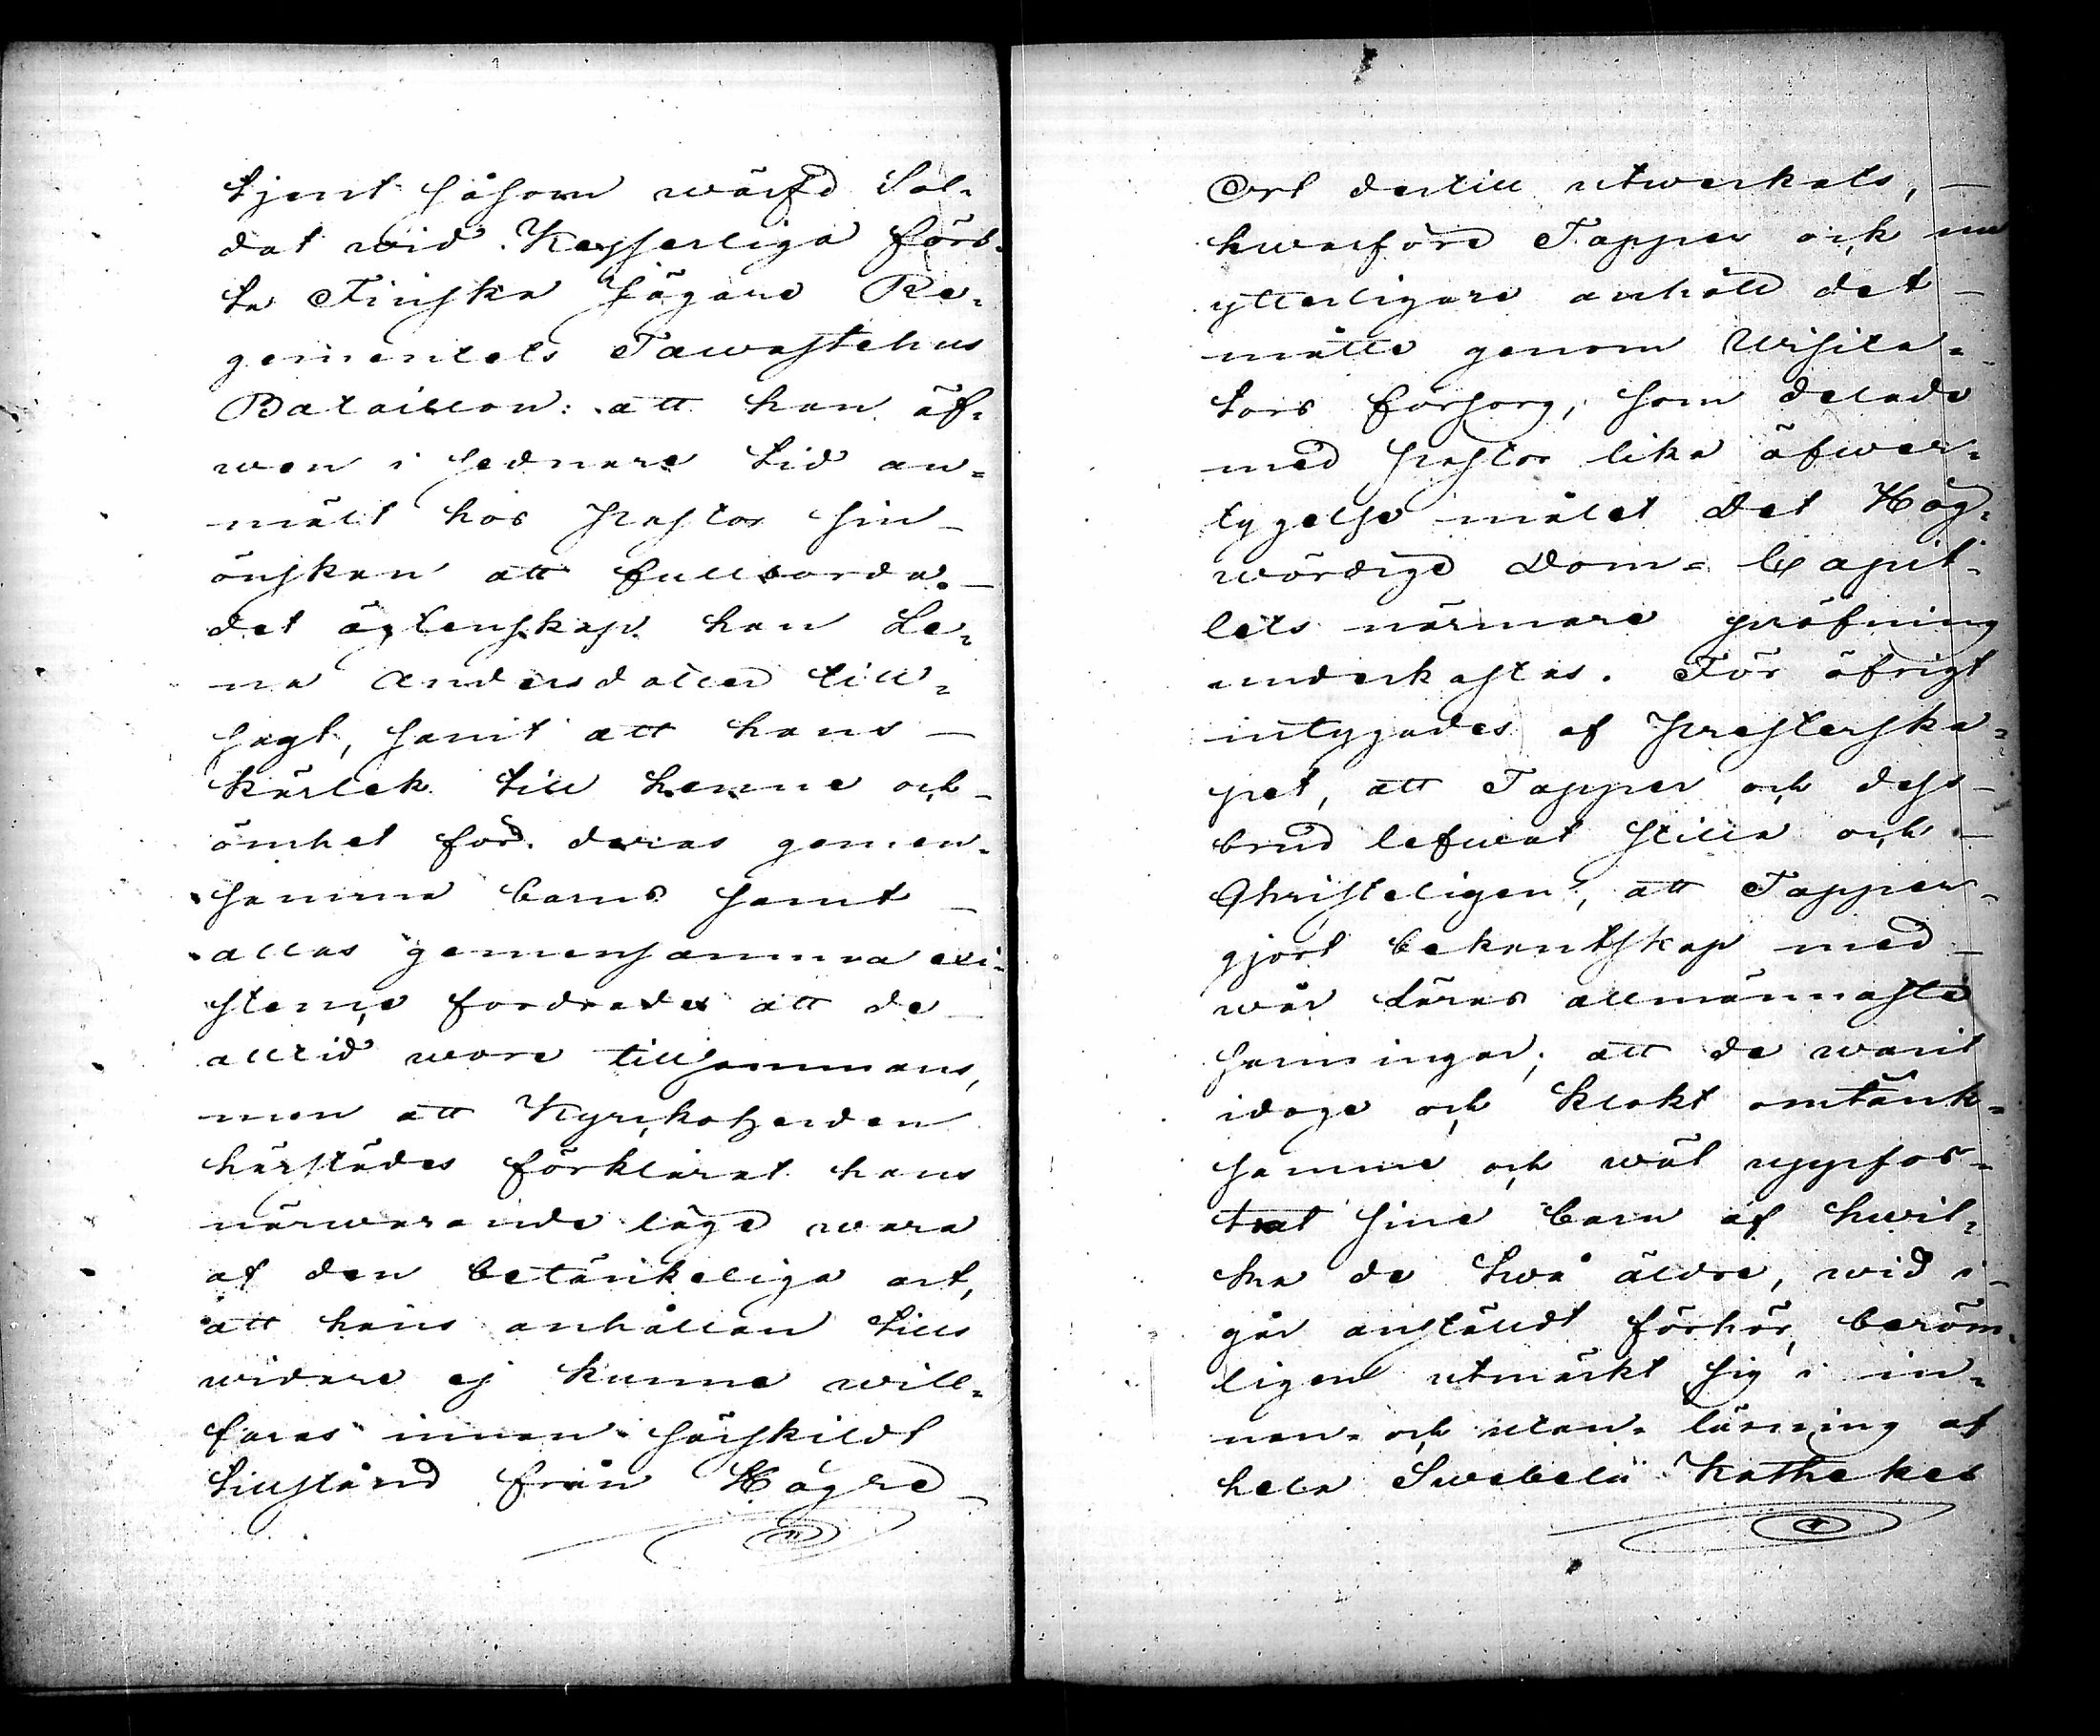 tjent såsom wärfd Sol-
dat wid Keyserliga förs-
ta Finska Jägare Re-
gementets Tawastehus
Bataillon: att han äf-
wen i sednare tid an-
mält hos Pastor sin
önskan att fullborda
det ägtenskap han Le-
na Andersdotter till-
sagt, samt att hans
kärlek till henne och
ömhet för deras gemen-
samma barns samt
allas gemensamma exi-
stence fordrade att de
alltid wore tillsammans,
men att Kyrckoherden
härstädes förklarat hans
närwarande läge wara
af den betänkeliga art,
att hans anhållan tills
widare ej kunne will-
faras innan särskildt
tillstånd från Högre
Ort dertill utwerkats,
hwarföre Tapper ock nu
ytterligare anhöll det
måtte genom Visita-
tors försorg, som delade
med Pastor lika öfwer-
tygelse målet Det Hög-
wördige Dom-Capit-
lets närmare pröfning
underkastas. För öfrigt
intygades af Presterska-
pet, att Tapper och dess
brud lefwat stilla och
Christeligen, att Tapper
gjort bekantskap med
wår Läras allmännaste
sanningar; att de warit
idoge och klokt omtänk-
samme och wäl uppfos-
trat sine barn af hwil-
ka de twå äldre, wid i
går anstäldt förhör, beröm-
ligen utmärkt sig i in-
nan- och utan-läsning af
hela Swebelii Kathekes